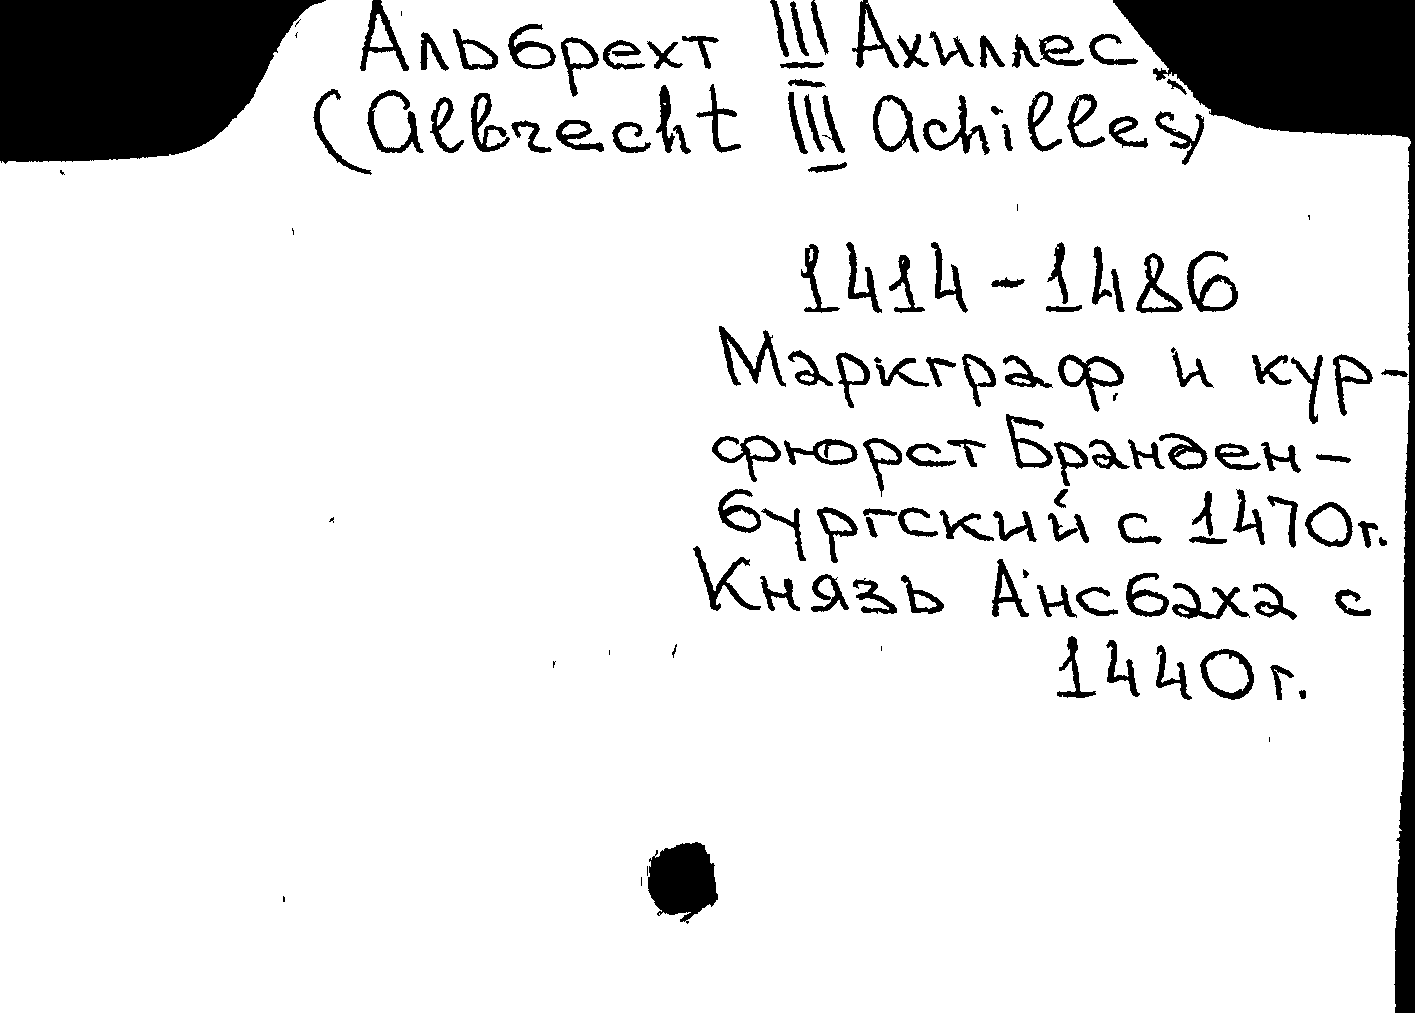 Альбрехт III Ахиллес
(Albrecht III Achilles)
1414-1486
Маркграф и кур-
фюрст Бранден-
бургский с 1470г.
Князь Ансбаха с
1440г.